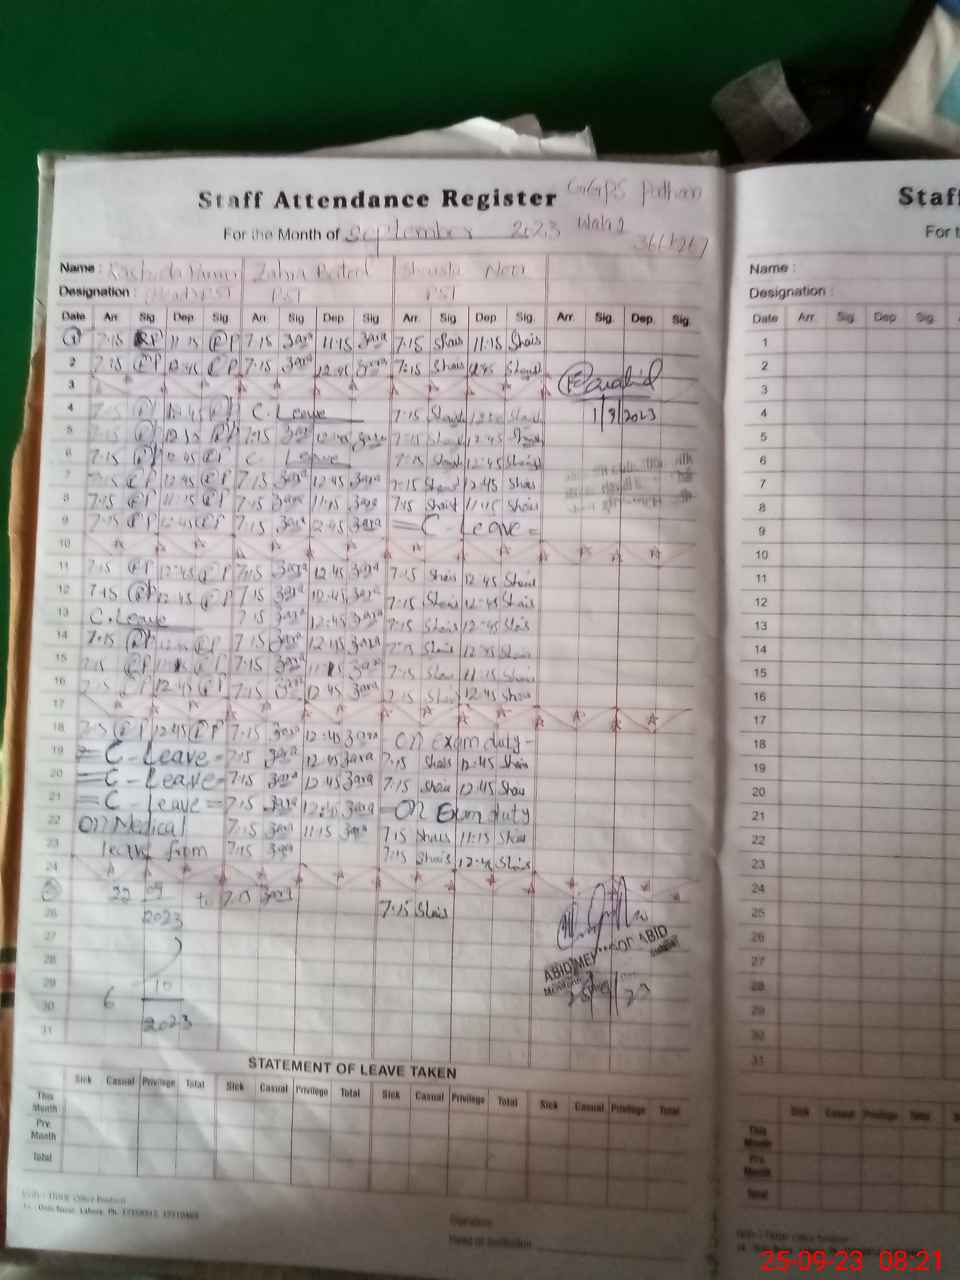 Staff Attendance Register GGPS Pathan
For the Month of September 2023 Wala 2
Name : Rashida Zahra Batool Shaista Noor
Designation : PST PST PST
Date Arr. Sig. Dep. Sig. Arr. Sig. Dep. Sig. Arr. Sig. Dep. Sig. Arr. Sig. Dep. Sig.
1 7:15 RP 11:15 RP 7:15 Zara 11:15 Zara 7:15 Shais 11:15 Shais
2 7:15 RP 12:45 RP 7:15 Zara 12:45 Zara 7:15 Shais 12:45 Shais
3
4 7:15 RP 12:45 RP C. Leave 7:15 Shais Shais 1/9/2023
5 7:15 RP RP 7:15 Zara 12:45 Zara 7:15 Shais 12:45 Shais
6 7:15 RP 12:45 RP C. Leave 7:15 Shais 12:45 Shais
7 7:15 RP 12:45 RP 7:15 Zara 12:45 Zara 7:15 Shais 12:45 Shais
8 7:15 RP 11:15 RP 7:15 Zara 11:15 Zara 7:15 Shais 11:15 Shais
9 7:15 RP 12:45 RP 7:15 Zara 12:45 Zara = C - Leave =
10
11 7:15 RP 12:45 RP 7:15 Zara 12:45 Zara 7:15 Shais 12:45 Shais
12 7:15 RP 12:45 RP 7:15 Zara 12:45 Zara 7:15 Shais 12:45 Shais
13 C. Leave 7:15 Zara 12:45 Zara 7:15 Shais 12:45 Shais
14 7:15 RP RP 7:15 Zara 12:45 Zara 7:15 Shais 12:45 Shais
15 7:15 RP 11:15 RP 7:15 Zara 11:15 Zara 7:15 Shais 11:15 Shais
16 7:15 RP 12:45 RP 7:15 Zara 12:45 Zara 7:15 Shais 12:45 Shais
17
18 RP 12:45 RP 7:15 Zara 12:45 Zara On Exam duty -
19 = C - Leave = 7:15 Zara 12:45 Zara 7:15 Shais 12:45 Shais
20 = C - Leave = 7:15 Zara 12:45 Zara 7:15 Shais 12:45 Shais
21 = C - Leave = 7:15 Zara 12:45 Zara = On Exam duty
22 On Medical 7:15 Zara 11:15 Zara 7:15 Shais 11:15 Shais
23 leave from 7:15 Zara 7:15 Shais 12:45 Shais
24
22 09 to 7:15 Zara
26 2023 7:15 Shais
27
28 ABID
29 10
30 6
31 2023
STATEMENT OF LEAVE TAKEN
Sick Casual Privilege Total Sick Casual Privilege Total Sick Casual Privilege Total Sick Casual Privilege Total
This Month
Pre. Month
Total
Signature
Head of Institution
Staff
For t
Name :
Designation :
Date Arr. Sig. Dep. Sig.
1
2
3
4
5
6
7
8
9
10
11
12
13
14
15
16
17
18
19
20
21
22
23
24
25
26
27
28
29
30
31
Sick Casual Privilege Total
This Month
Pre. Month
Total
25-09-23 08:21